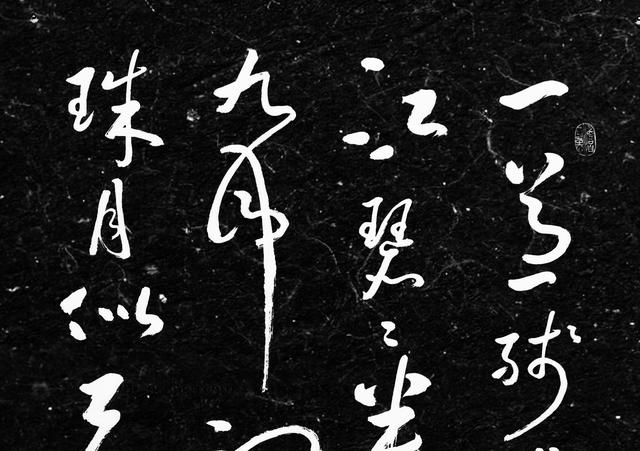 一道残
江瑟瑟半
九月
珠月似弓